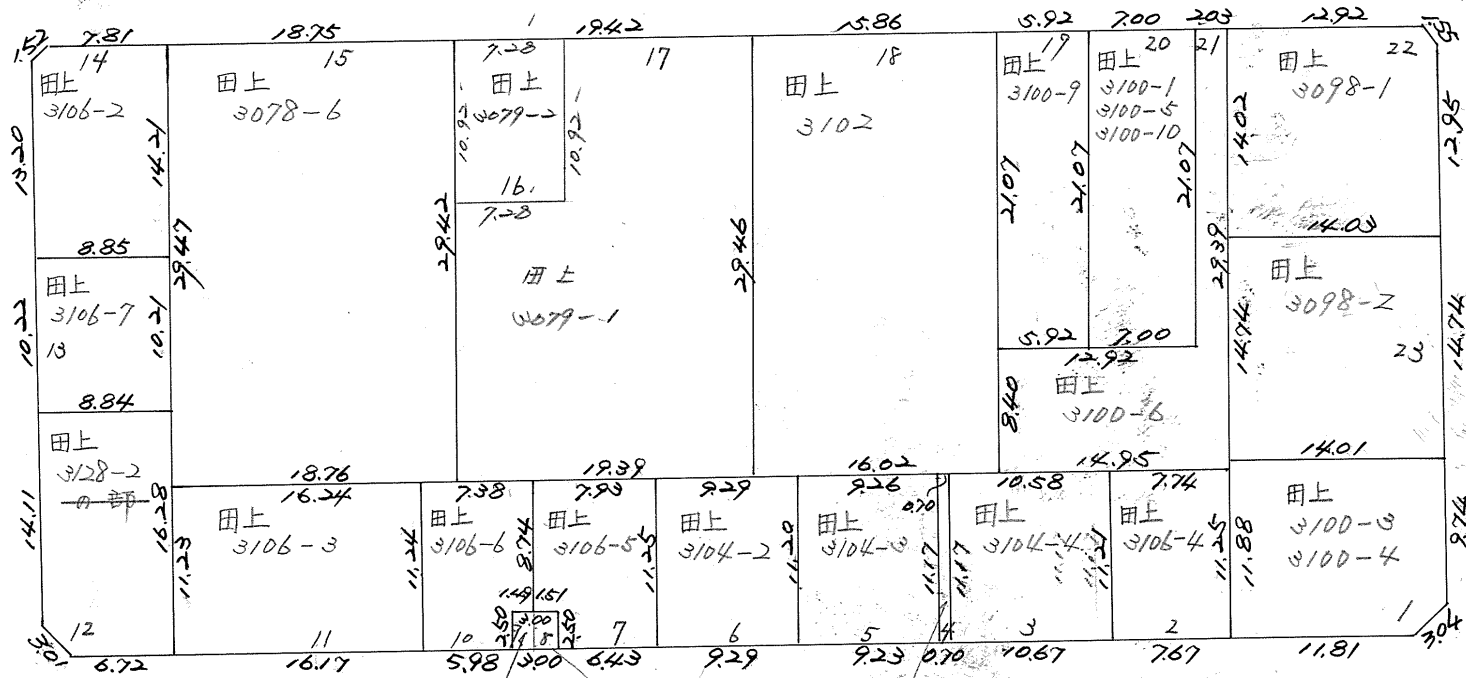 1.52
7.81
18.75
19.42
15.86
5.92
7.00
2.03
12.92
14
田上
3106-2
13.20
14.21
8.85
15
田上
3078-6
29.47
29.42
7.28
田上
3079-2
10.92
10.92
16
7.28
17
田上
3079-1
29.46
18
田上
3102
19
田上
3100-9
21.07
21.07
5.92
20
田上
3100-1
3100-5
3100-10
21.07
7.00
21
29.39
22
田上
3098-1
14.02
12.95
14.03
田上
3098-2
14.74
14.74
23
田上
3106-7
13
10.22
10.21
8.84
12.92
田上
3100-6
8.40
14.95
14.01
田上
3128-2
の部
14.11
16.28
12
18.76
16.24
田上
3106-3
11.23
11.24
11
7.38
田上
3106-6
8.74
1.49
2.50
10
19.39
7.93
田上
3106-5
11.25
1.51
3.00
2.50
8
7
9.29
田上
3104-2
11.20
6
16.02
9.26
田上
3104-3
11.17
5
0.70
11.17
4
10.58
田上
3104-4
11.21
3
7.74
田上
3106-4
11.25
2
田上
3100-3
3100-4
11.88
9.74
1
3.01
6.72
16.17
5.98
3.00
6.43
9.29
9.23
0.70
10.67
7.67
11.81
3.04